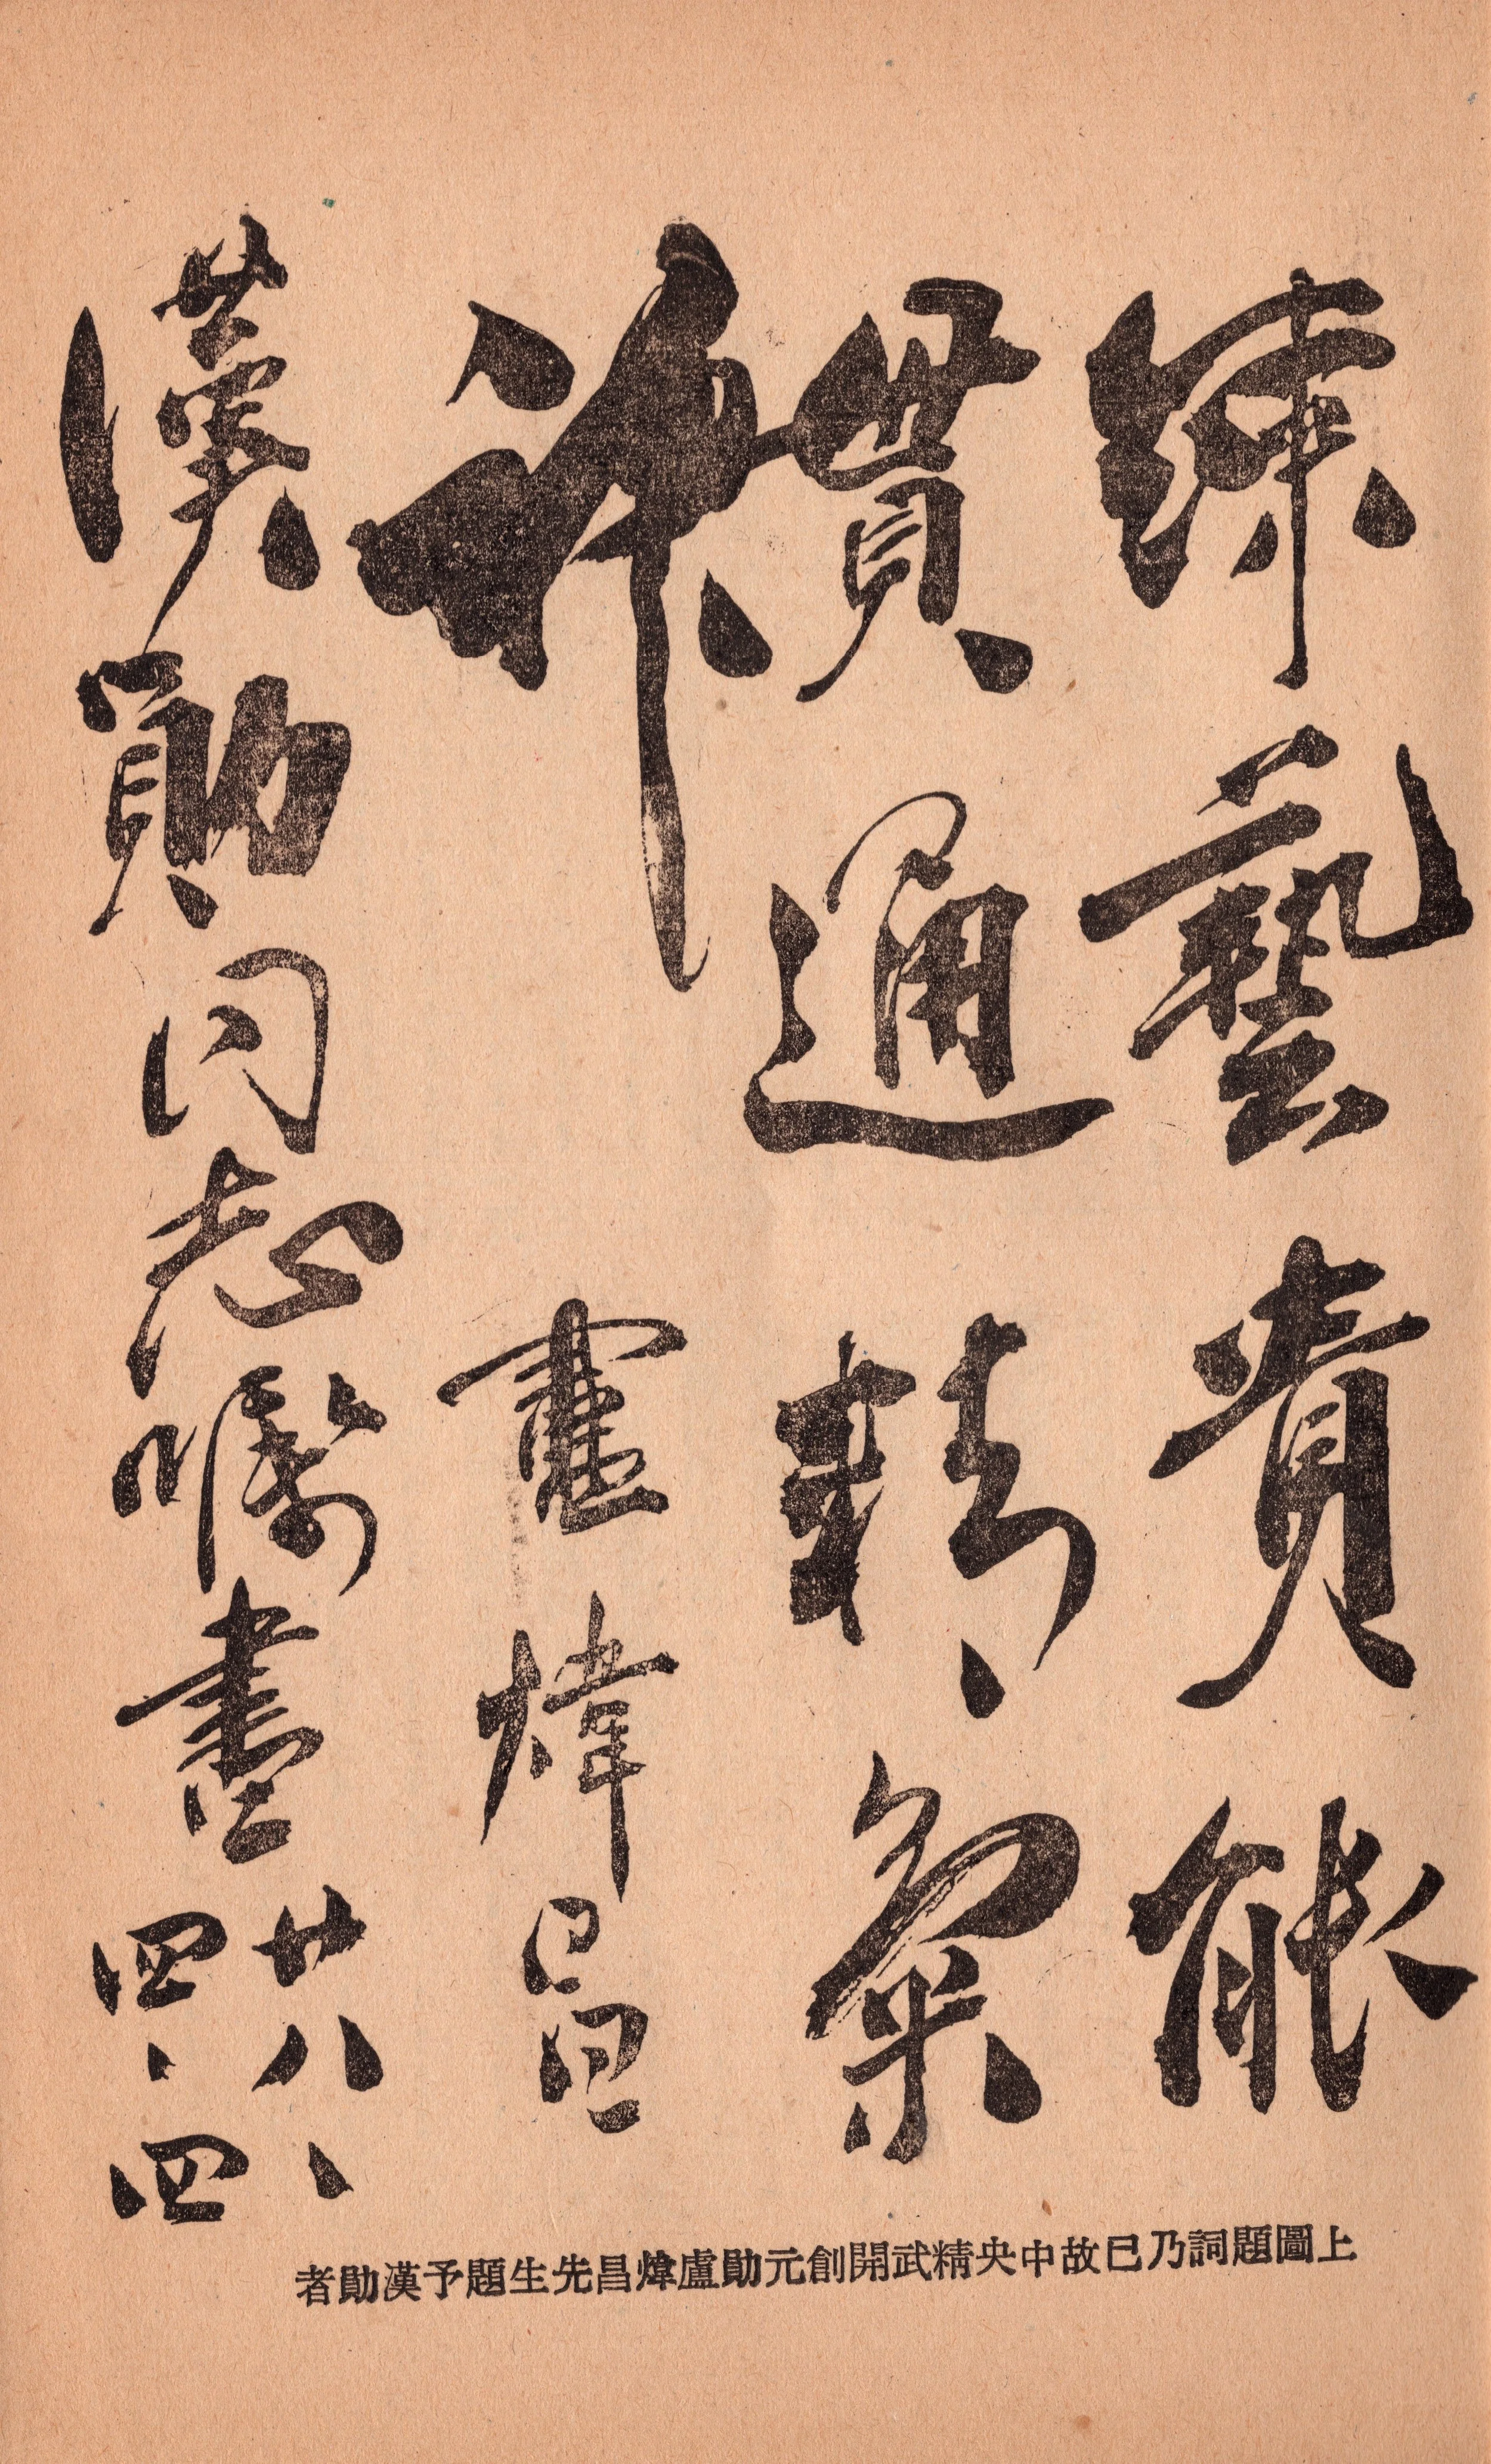 練藝貴能
貫通精氣
神
盧煒昌
漢勛同志囑書
廿八、
四、四
上圖題詞乃已故中央精武開創元勛盧煒昌先生題予漢勛者